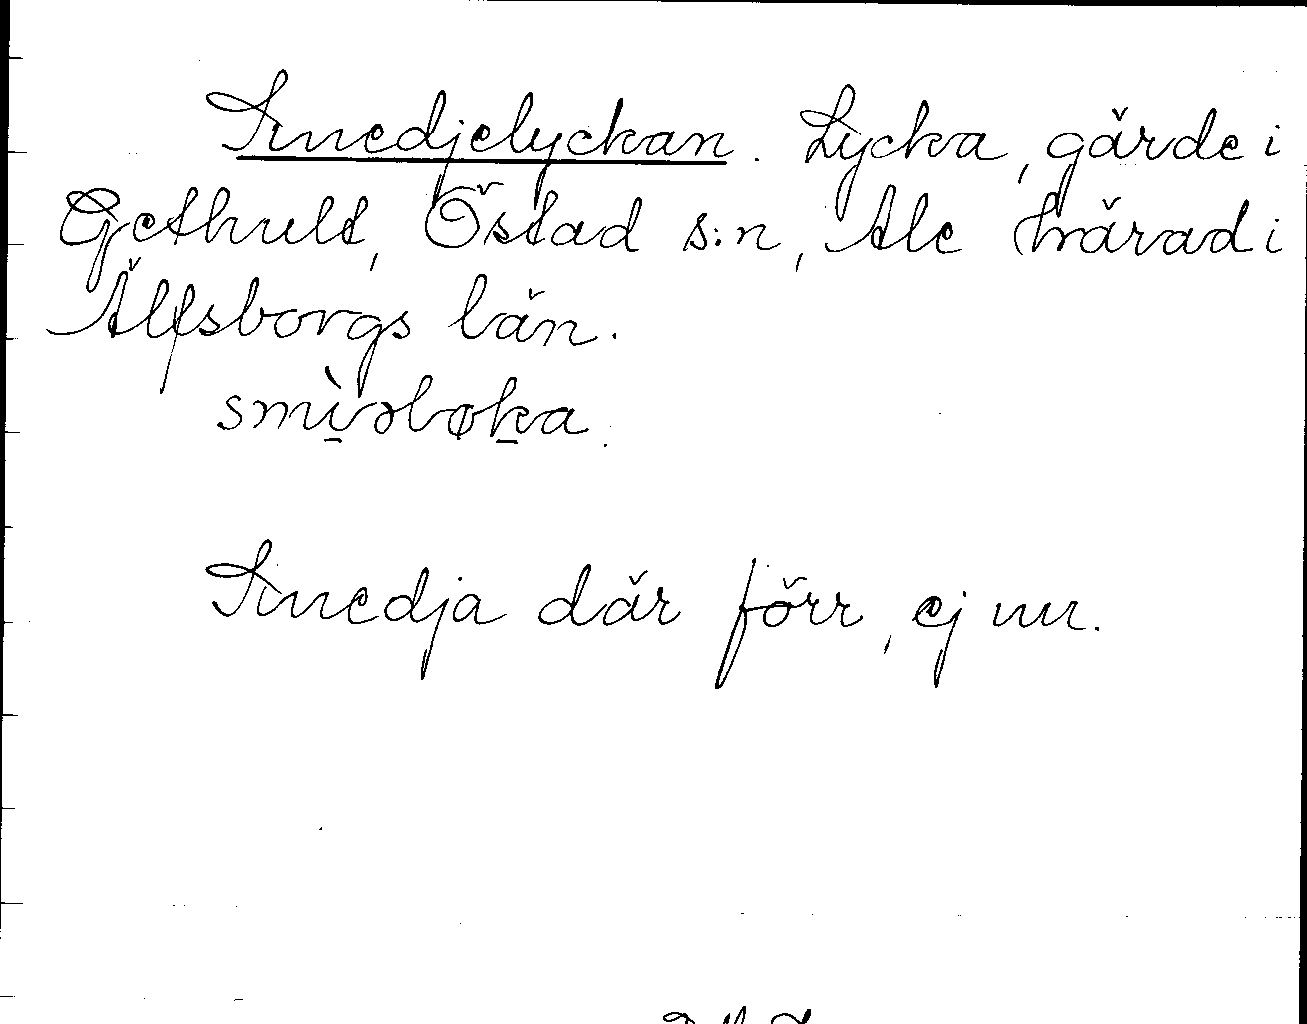 Smedjelyckan. Lycka, gärde i
Gethult, Östad s:n, Ale härad i
Älfsborgs län.
smì̱əløḵa.
Smedja där förr, ej nu.